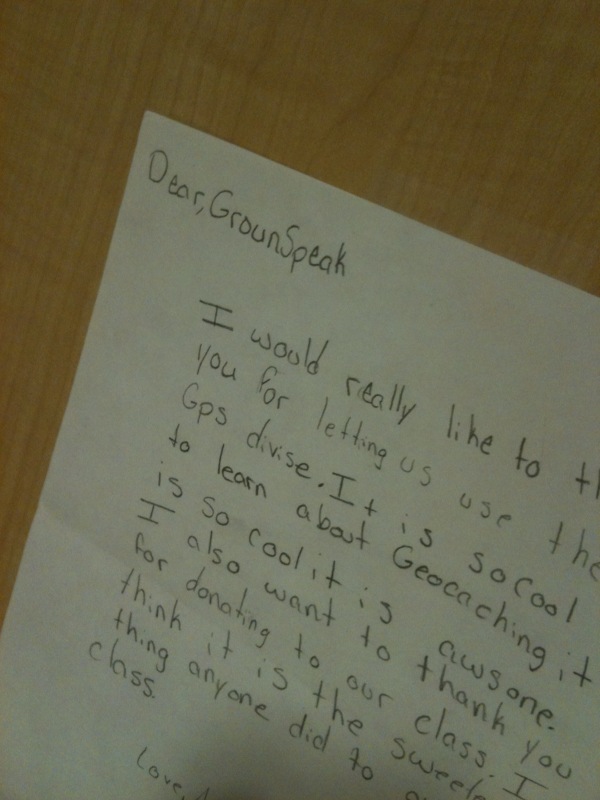 Dear, GrounSpeak
I would really like to th
you for letting us use the
Gps divise. It is so cool
to learn about Geocaching it
is so cool it is awsone.
I also want to thank you
for donating to our class. I
think it is the sweet
thing anyone did to
class.
Love,